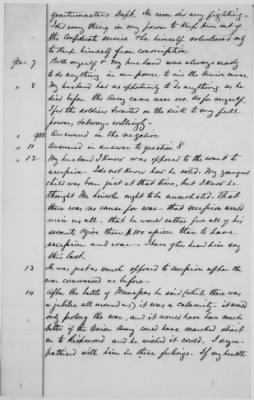 quartermasters Dept. He never did any fighting.
I did every thing in my power to keep him out of
the Confederate service. He himself volunteered only
to keep himself from conscription
Ques 7 Both myself & my husband was always ready
to do anything in our power to aid the Union cause.
" 8 My husband had no opportunity to do anything as he
died before the Army came near us. As for myself
for the soldiers & waited on the sick to my full
power, & always willingly.
Answered in the negative
" 11 Answered in answer to question 8
" 12 My husband I know was opposed to the war & to
secession. I do not know how he voted. My youngest
child was born just at that time, but I know he
thought Mr Lincoln ought to be unmolested. That
there was no cause for war - that secession would
ruin us all - that he would rather free all of his
servants & give them $100 apiece than to have
secession and war - I have often heard him say
this last.
13 He was just as much opposed to secession after the
war commenced as before.
14 After the battle of Manassas he said (while there was
a jubilee all around us) it was a calamity - it would
only prolong the war, and it would have been much
better if the Union Army could have marched straight
on to Richmond and he wished it could. I sym-
pathised with him in these feelings. If my health